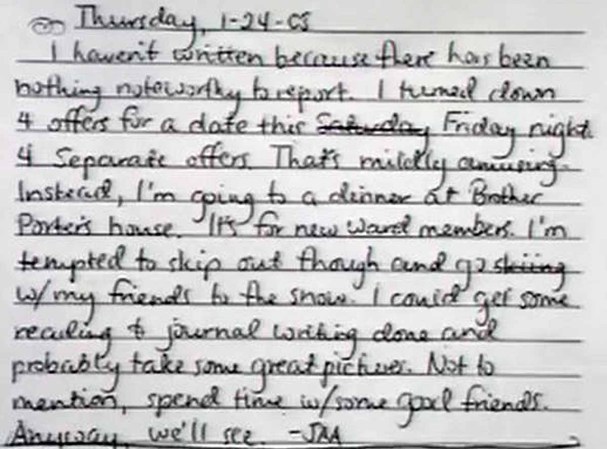 Thursday, 1-24-05
I haven't written because there has been
nothing noteworthy to report. I turned down
4 offers for a date this Saturday Friday night.
4 separate offers. That's mildly amusing.
Instead, I'm going to a dinner at Brother
Porter's house. It's for new ward members. I'm
tempted to skip out though and go skiing
w/my friends to the snow. I could get some
reading & journal writing done and
probably take some great pictures. Not to
mention, spend time w/some good friends.
Anyway, we'll see. -JAA